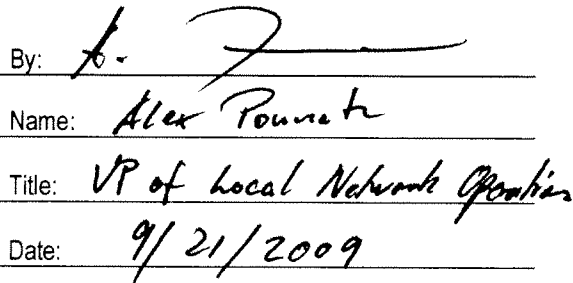 By: A.
Name: Alex
Title: VP of Local Network Operations
Date: 9/21/2009